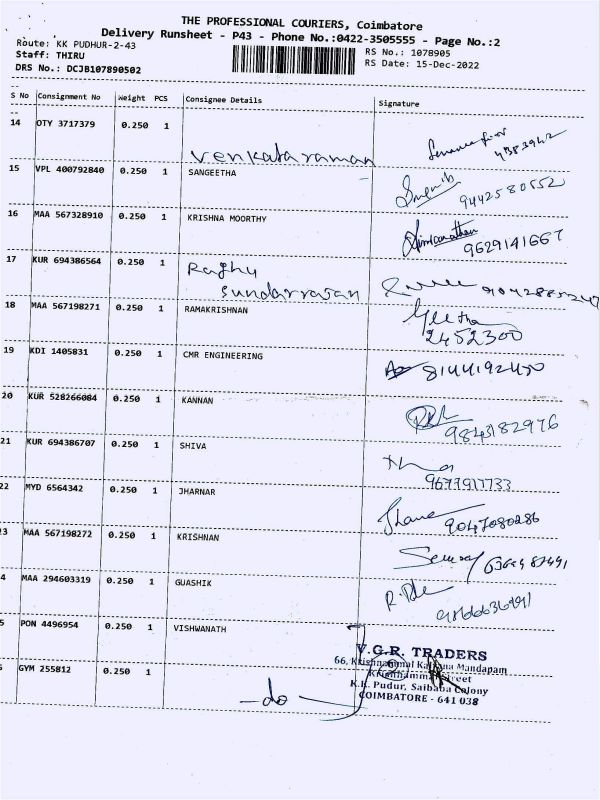 THE PROFESSIONAL COURIERS, Coimbatore
Delivery Runsheet - P43 - Phone No.:0422-3505555 - Page No.:2
Route: KK PUDHUR-2-43
RS No.: 1078905
Staff: THIRU
RS Date: 15-Dec-2022
DRS No.: DCJB107890502
S No Consignment No Weight PCS Consignee Details Signature
14 OTY 3717379 0.250 1 Venkataraman 4383942
15 VPL 400792840 0.250 1 SANGEETHA 9442580552
16 MAA 567328910 0.250 1 KRISHNA MOORTHY 9629141667
17 KUR 694386564 0.250 1 Raghu
Sundarrajan
18 MAA 567198271 0.250 1 RAMAKRISHNAN Geetha
2452300
19 KDI 1405831 0.250 1 CMR ENGINEERING 8144192450
20 KUR 528266084 0.250 1 KANNAN
9843182976
21 KUR 694386707 0.250 1 SHIVA
9677917733
22 MYD 6564342 0.250 1 JHARNAR
9047080286
23 MAA 567198272 0.250 1 KRISHNAN
4 MAA 294603319 0.250 1 GUASHIK
5 PON 4496954 0.250 1 VISHWANATH
V.G.R. TRADERS
66, Krishnammal Kalyana Mandapam
Krishnammal Street
K.K. Pudur, Saibaba Colony
COIMBATORE - 641 038
6 GYM 255812 0.250 1 -do-